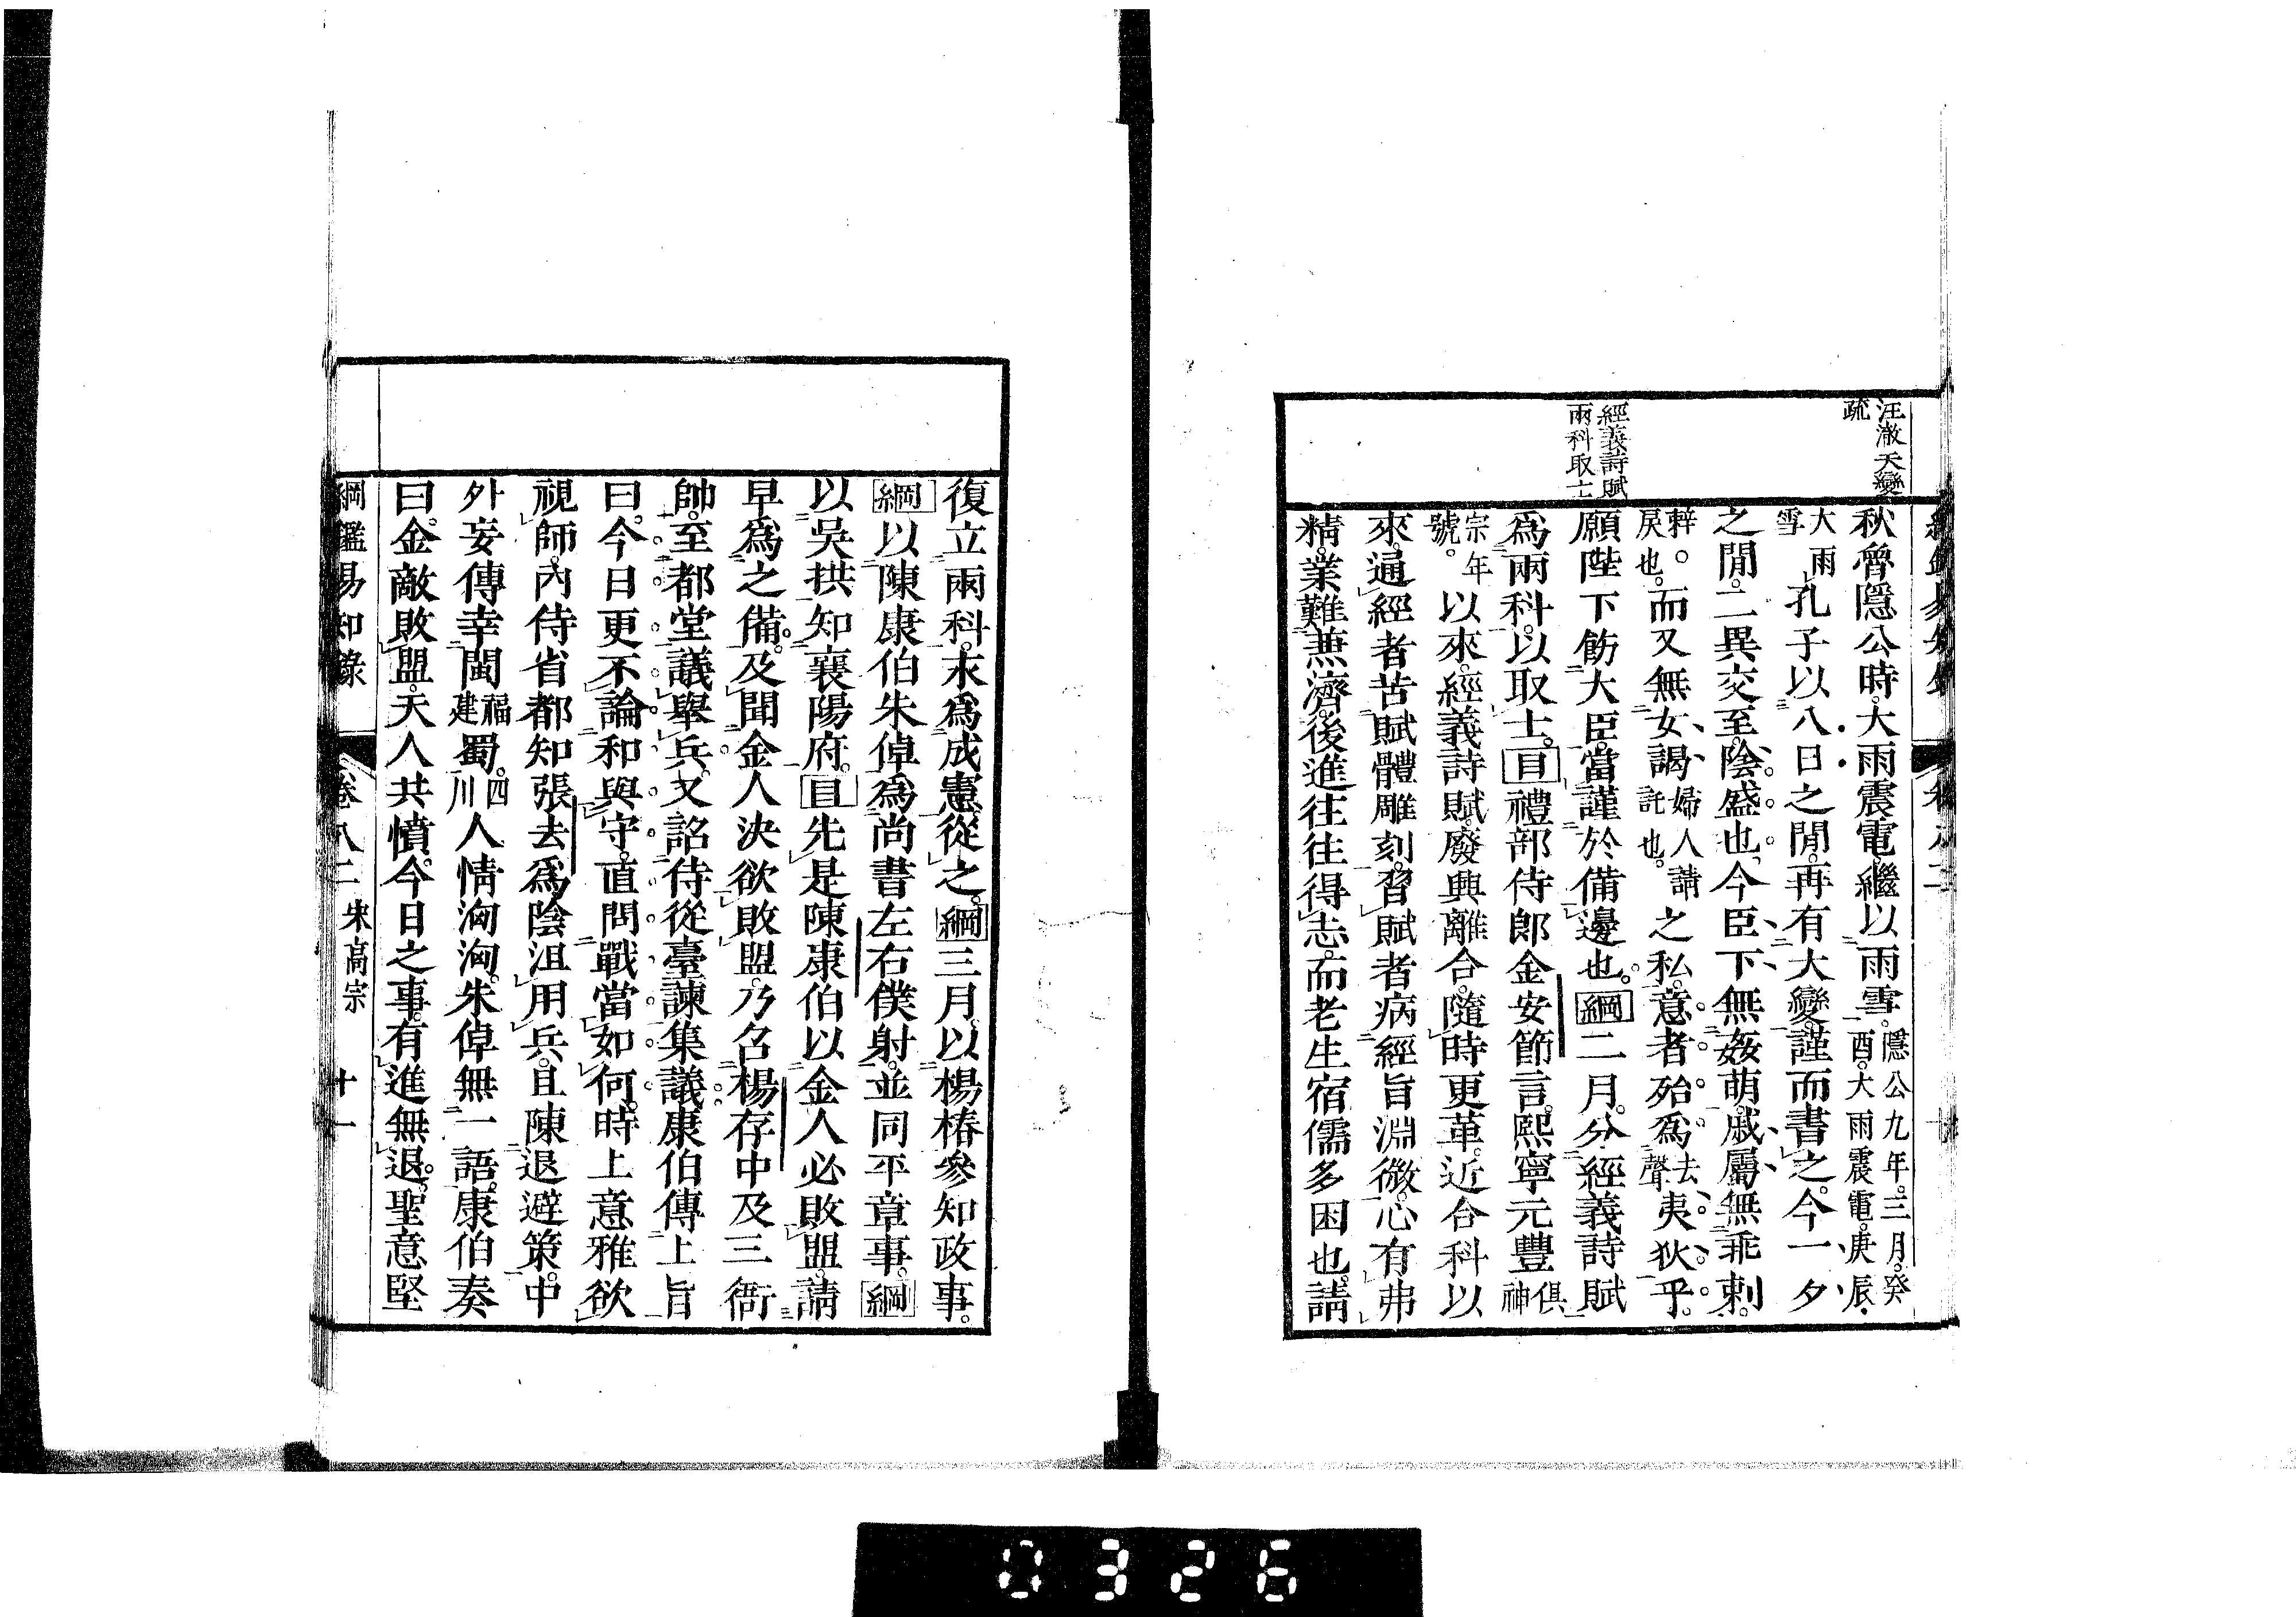 汪澈天變
疏
經義詩賦
兩科取士
秋魯隱公時。大雨震電。繼以雨雪。隱公九年。三月。癸酉。大雨震電。庚辰。
大雨雪孔子以八日之閒。再有大變。謹而書之。今一夕
之閒。二異交至。陰盛也。今臣下無姦萌。戚屬無乖剌。
戾也。而又無女謁婦人請託也。之私。意者殆爲去聲夷狄乎。
願陛下飭大臣。當謹於備邊也。綱二月。分經義詩賦
爲兩科。以取士。目禮部侍郎金安節言。熙寧元豐俱神
宗年號。以來。經義詩賦。廢興離合。隨時更革。近合科以
來。通經者苦賦體雕刻。習賦者病經旨淵微。心有弗
精。業難兼濟。後進往往得志。而老生宿儒多困也。請
復立兩科。永爲成憲。從之。綱三月。以楊椿參知政事。
綱以陳康伯朱倬爲尚書左右僕射。並同平章事。綱
以吳拱知襄陽府。目先是陳康伯以金人必敗盟。請
早爲之備。及聞金人決欲敗盟。乃召楊存中及三衙
帥。至都堂議舉兵。又詔侍從臺諫集議。康伯傳上旨
曰。今日更不論和與守。直問戰當如何。時上意雅欲
視師。內侍省都知張去爲陰沮用兵。且陳退避策。中
外妄傳幸閩福建蜀。四川人情洶洶。朱倬無一語。康伯奏
曰。金敵敗盟。天人共憤。今日之事。有進無退。聖意堅
綱鑑易知錄 卷八二 宋高宗 十一